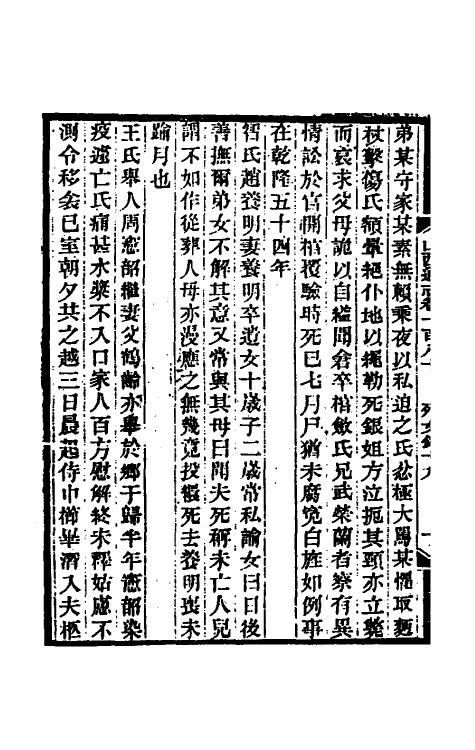 弟某守家某素無賴乘夜以私迫之氏忿極大罵某慚取麪
杖擊傷氏額暈絕仆地以繩勒死銀姐方泣扼其頸亦立斃
而哀求父母詭以自縊聞倉卒棺斂氏兄武榮蘭者察有異
情訟於官開棺覆驗時死已七月尸猶未腐冤白旌如例事
在乾隆五十四年
智氏趙養明妻養明卒遺女十歲子二歲常私諭女曰日後
善撫爾弟女不解其意又常與其母曰聞夫死稱未亡人兒
謂不如作從葬人母亦漫應之無幾竟投繯死去養明喪未
踰月也
王氏舉人周憲韶繼妻父鶴齡亦舉於鄉于歸半年憲韶染
疫遽亡氏痛甚水漿不入口家人百方慰解終未釋姑慮不
測令移舍已室朝夕共之越三日晨起侍巾櫛畢潛入夫柩
山西通志卷一百八十 列女錄十九